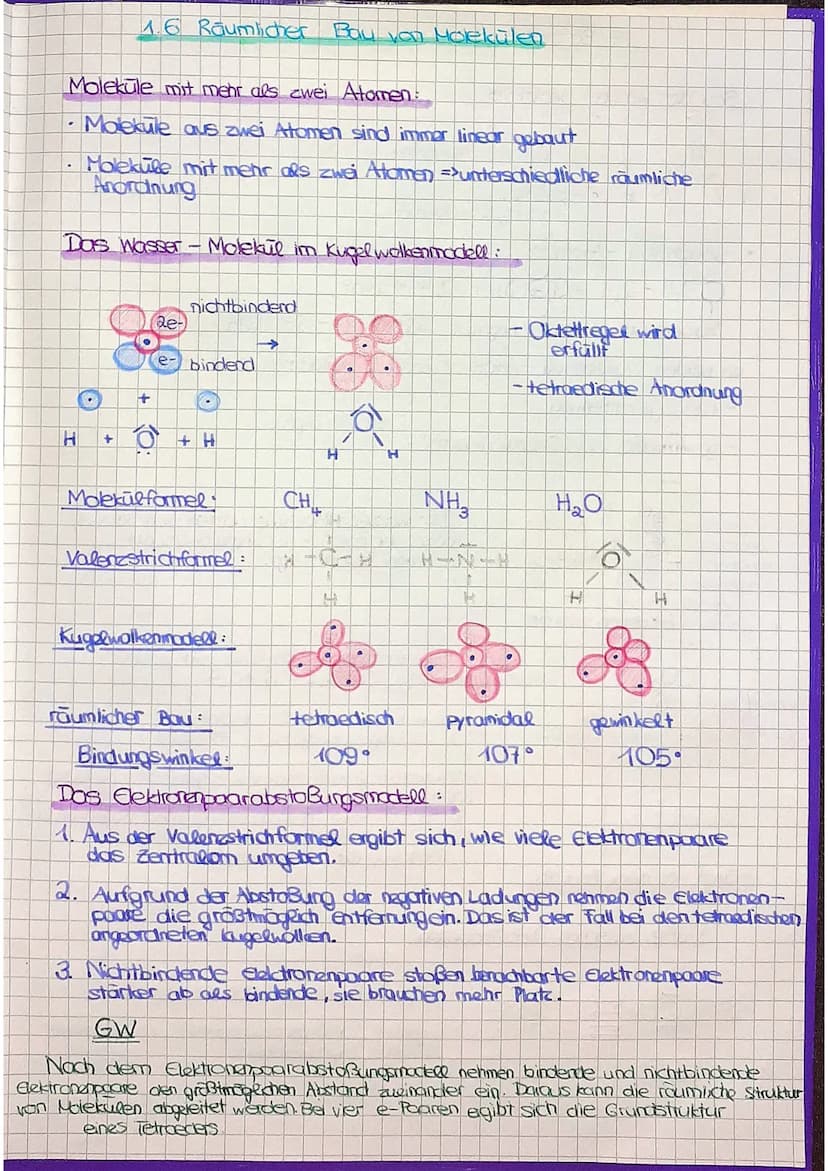 1.6 Räumlicher Bau von Molekülen
Moleküle mit mehr als zwei Atomen:
· Moleküle aus zwei Atomen sind immer linear gebaut
· Moleküle mit mehr als zwei Atomen => unterschiedliche räumliche
Anordnung
Das Wasser - Molekül im Kugelwolkenmodell:
nichtbinderd
2e-
e- bindend
→
- Oktettregel wird
erfüllt
- tetraedische Anordnung
+
H + O + H
O
H H
Molekülformel: CH4 NH3 H2O
Valenzstrichformel: H-C-H H-N-H O
H H H H
Kugelwolkenmodell:
räumlicher Bau: tetraedisch pyramidal gewinkelt
Bindungswinkel: 109° 107° 105°
Das Elektronenpaarabstoßungsmodell:
1. Aus der Valenzstrichformel ergibt sich, wie viele Elektronenpaare
das Zentralom umgeben.
2. Aufgrund der Abstoßung der negativen Ladungen nehmen die Elektronen-
paare die größtmöglich Entfernung ein. Das ist der Fall bei den tetraedischen
angeordneten Kugelwolken.
3. Nichtbindende Elektronenpaare stoßen benachbarte Elektronenpaare
stärker ab als bindende, sie brauchen mehr Platz.
GW
Nach dem Elektronenpaarabstoßungsmodell nehmen bindende und nichtbindende
Elektronenpaare den größtmöglichen Abstand zueinander ein. Daraus kann die räumliche Struktur
von Molekülen abgeleitet werden. Bei vier e-Paaren egibt sich die Grundstruktur
eines Tetraeders.